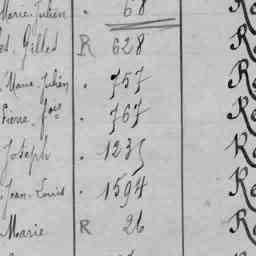 Marie-Julien . 68
es, Gilles R 628 R
Marie-Julien . 757 R
Pierre, fois . 767 R
Joseph . 1235 R
Jean-Louis . 1594 R
Marie R 26 R